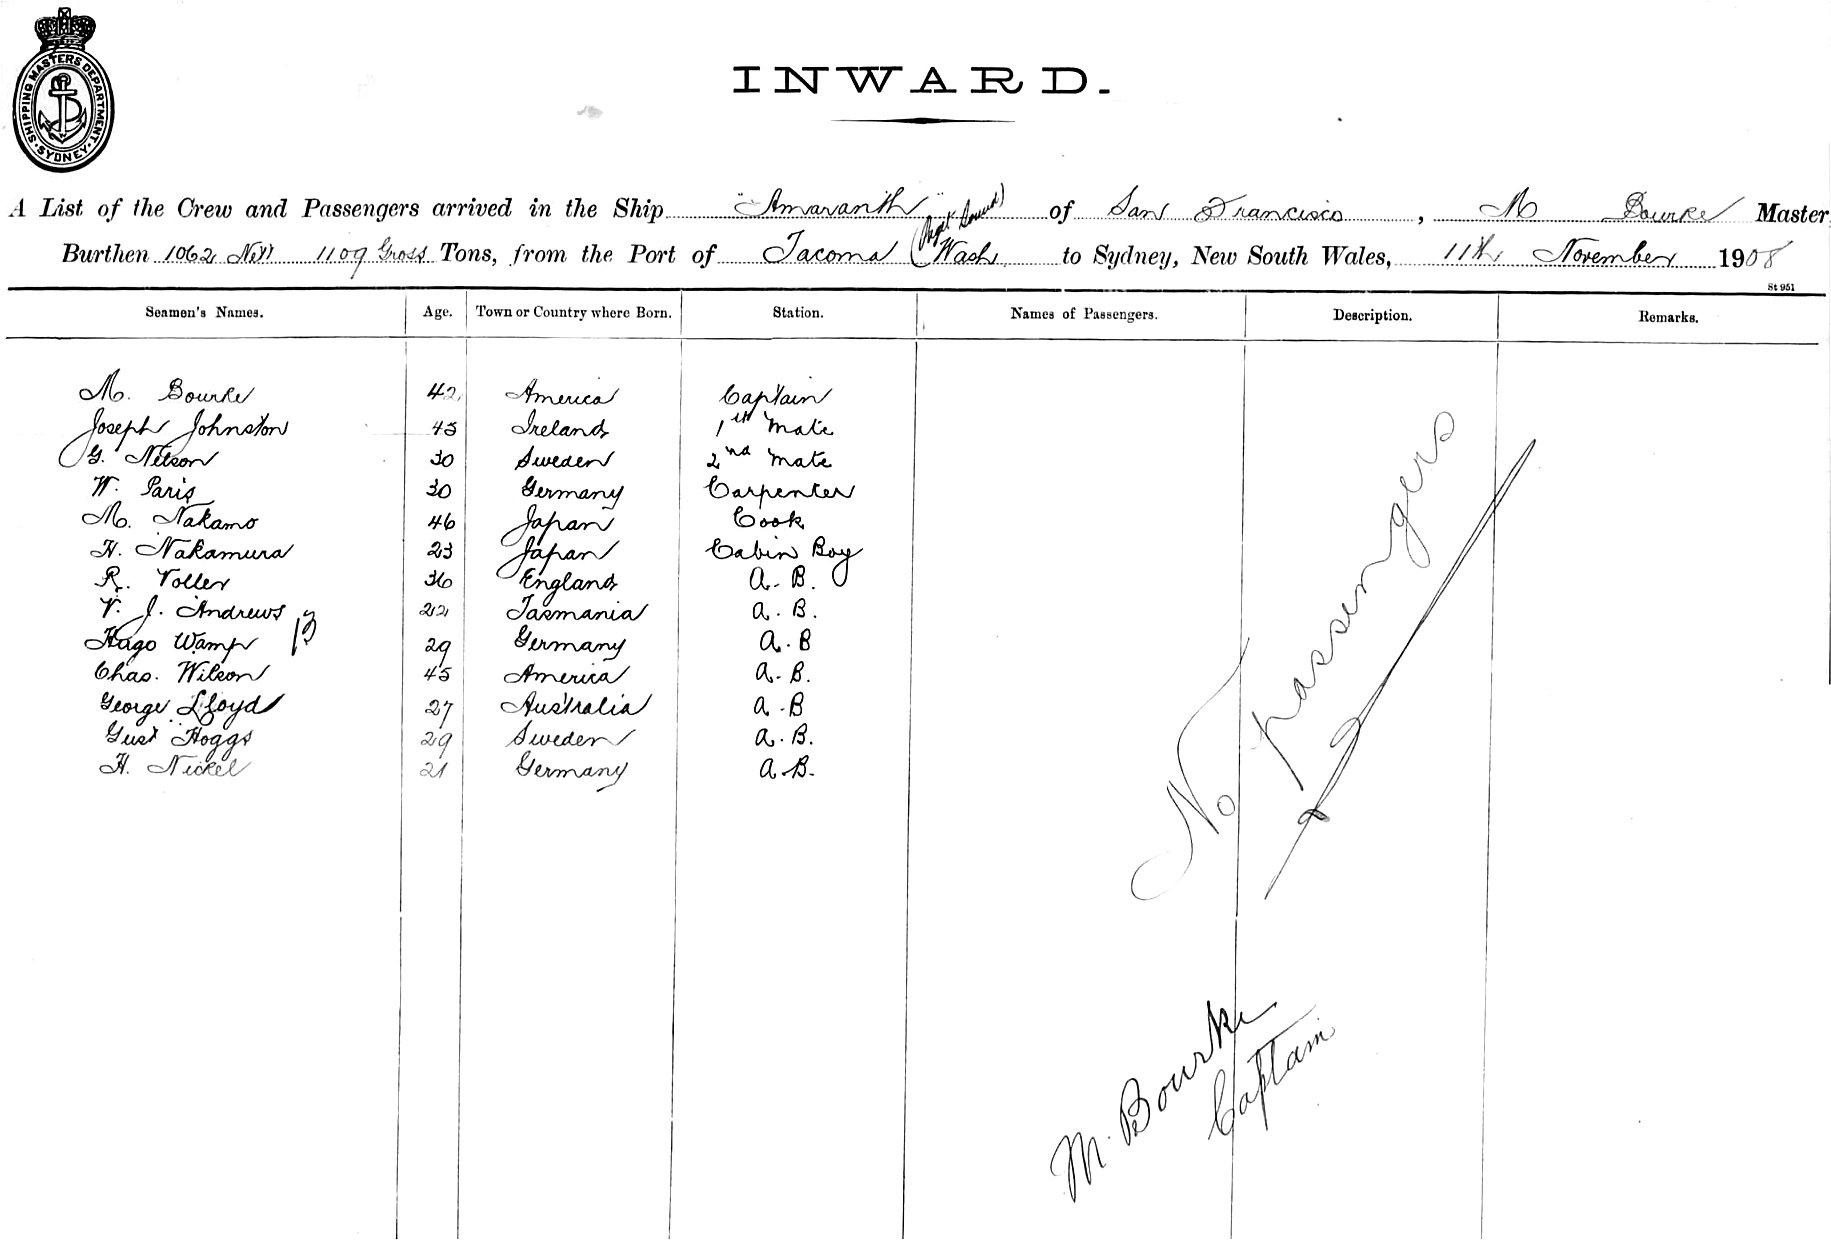 SHIPPING MASTERS DEPARTMENT · SYDNEY ·
INWARD.
A List of the Crew and Passengers arrived in the Ship "Amaranth" of San Francisco, M Bourke Master
Burthen 1062 Nett 1109 Gross Tons, from the Port of Tacoma (Wash Puget Sound) to Sydney, New South Wales, 11th November 1908
St 951
Seamen's Names. Age. Town or Country where Born. Station. Names of Passengers. Description. Remarks.
M. Bourke 42 America Captain
Joseph Johnston 45 Ireland 1st Mate
G. Nelson 30 Sweden 2nd Mate
W. Paris 30 Germany Carpenter
M. Nakamo 46 Japan Cook
H. Nakamura 23 Japan Cabin Boy
R. Voller 36 England A. B.
V. J. Andrews 22 Tasmania A. B.
13
Hugo Wamp 29 Germany A. B
Chas. Wilson 45 America A. B.
George Lloyd 27 Australia A. B
Gust Hoggs 29 Sweden A. B.
H. Nickel 21 Germany A. B.
No passengers
M. Bourke
Captain